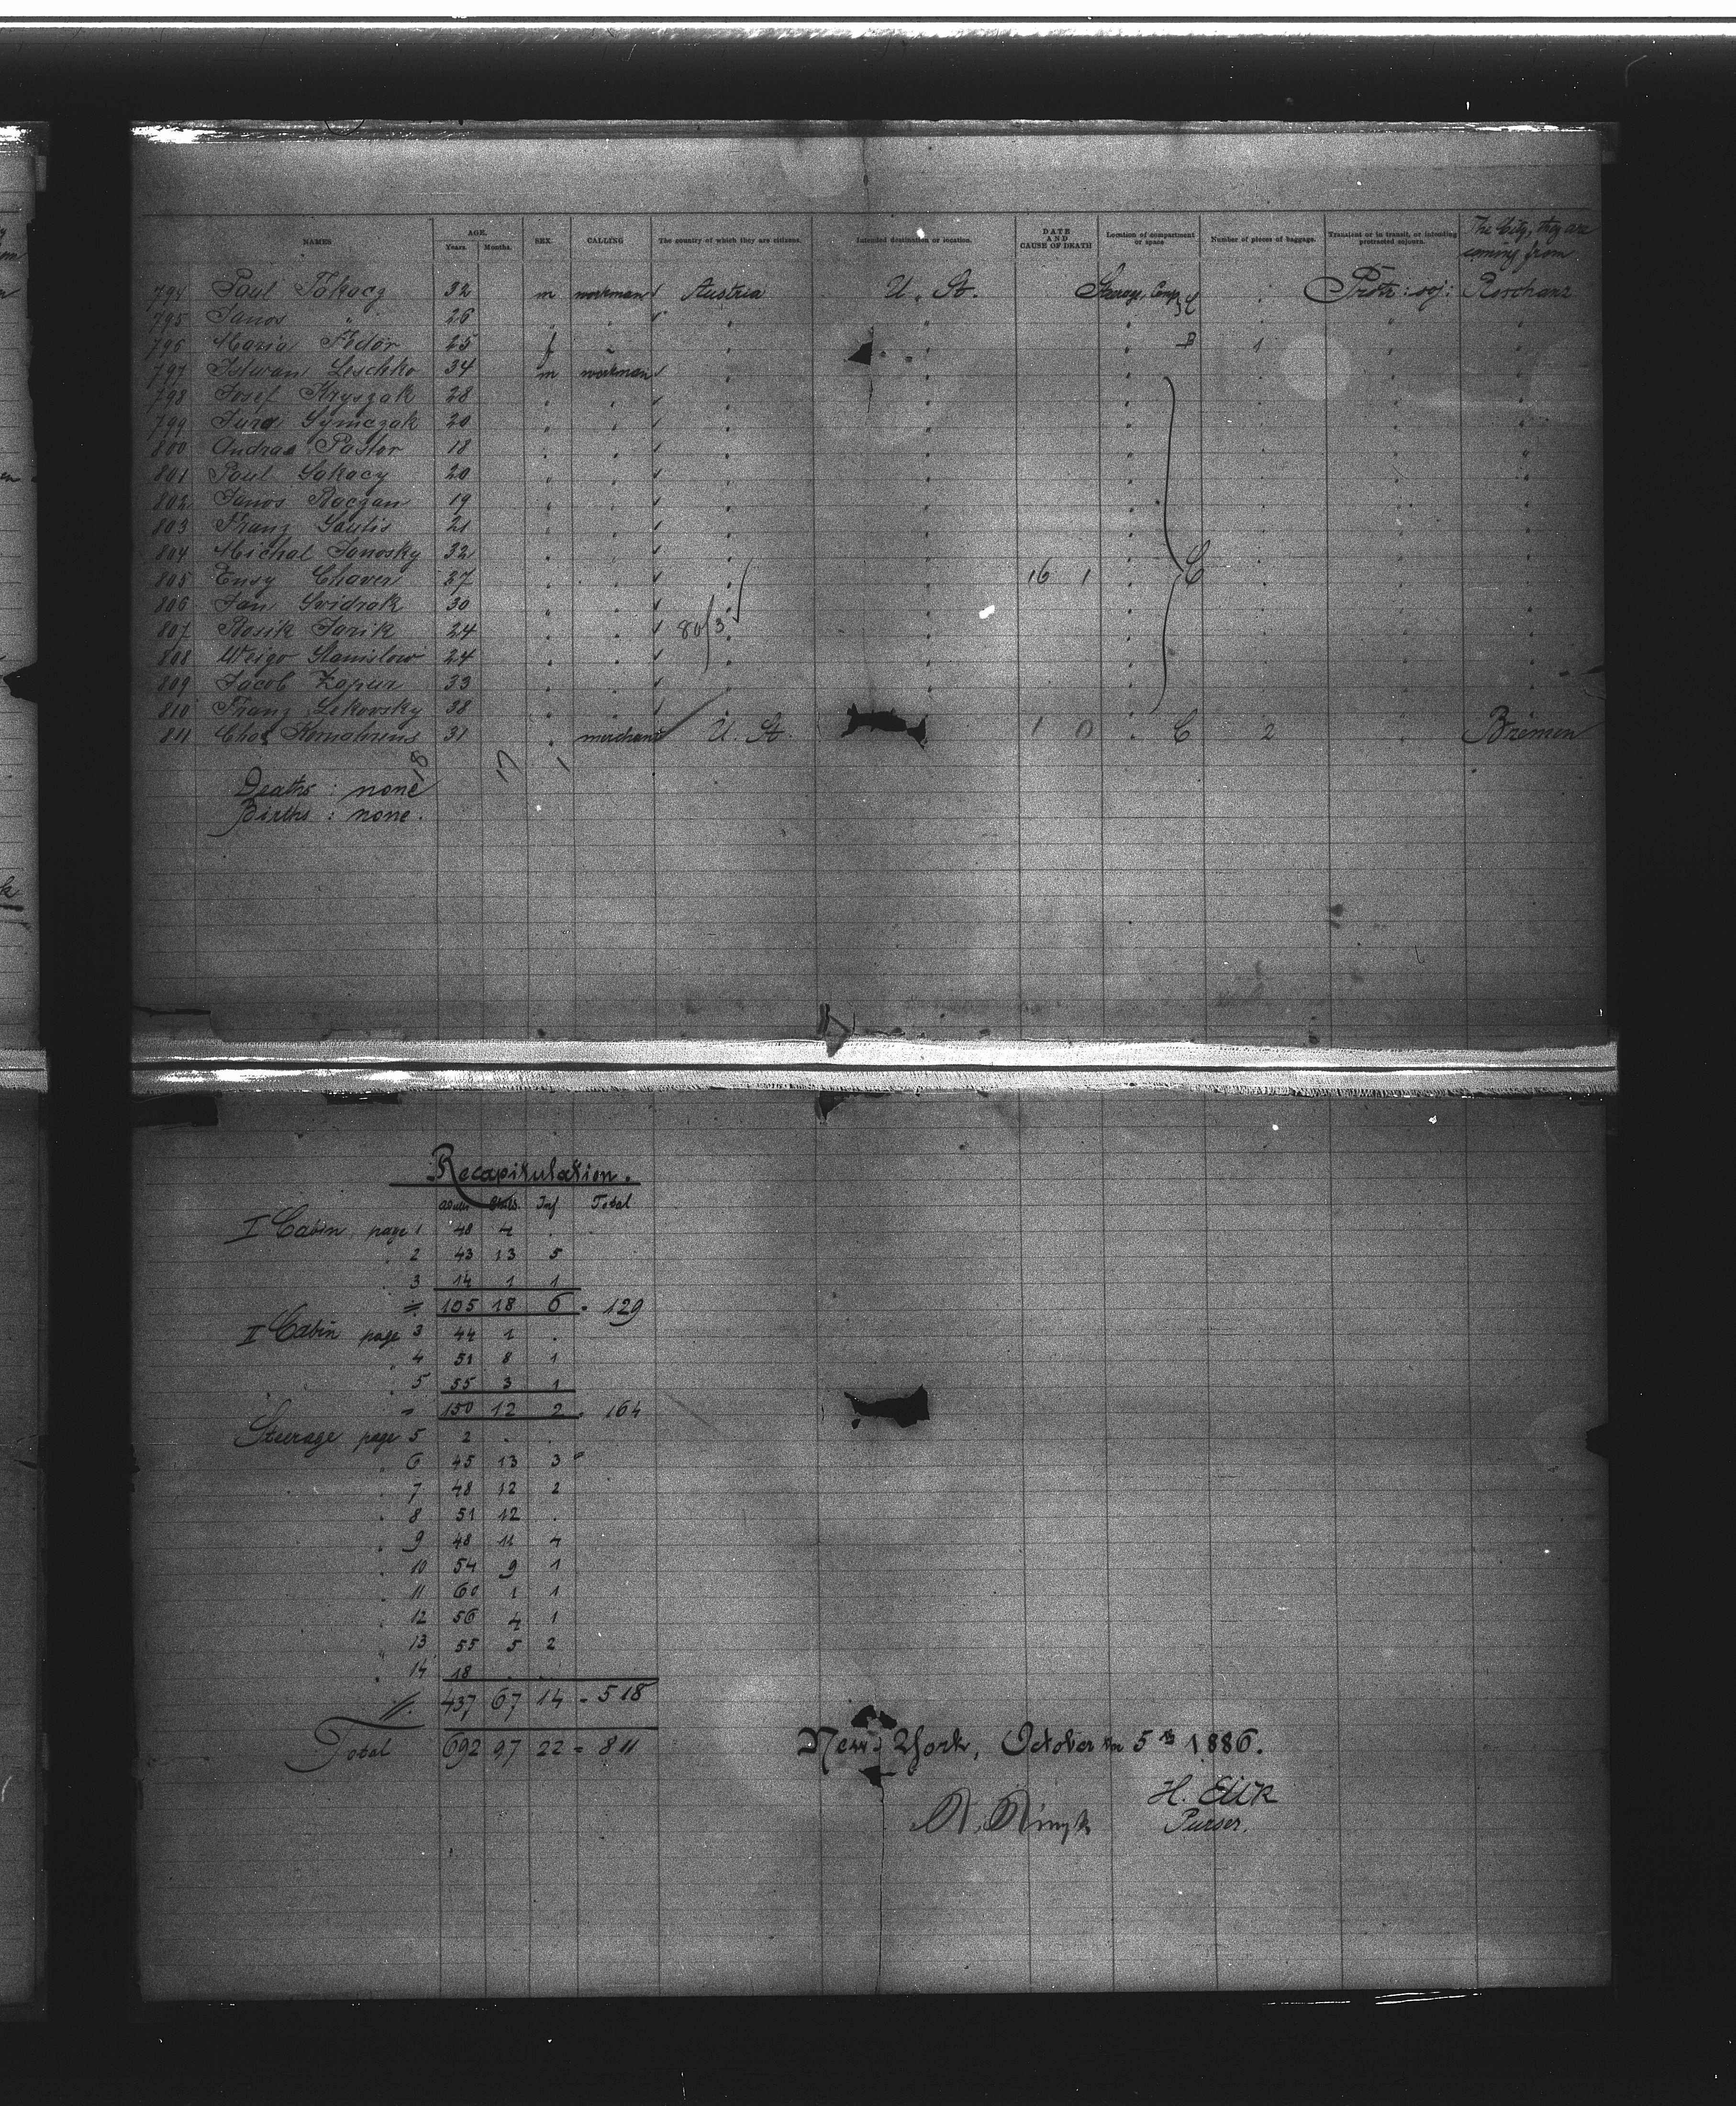 NAMES AGE. Years. Months. SEX. CALLING The country of which they are citizens. Intended destination or location. DATE AND CAUSE OF DEATH Location of compartment or space Number of pieces of baggage. Transient or in transit, or intending protracted sojourn. The City, they are coming from
794 Paul Takacz 32 m workman Austria U. St. Steerage, Comp. C Protr: soj:
795 Janos " 26
796 Maria Fedor 25 f 1
797 Istwan Leschko 34 m workman
798 Josef Kryszak 28
799 Jura Symczak 20
800 Andras Pastor 18
801 Paul Sakacy 20
802 Janos Raczan 19
803 Franz 21
804 Michal Janosky 32
805 Chaver 27 16 1 C
806 Jan Swidrak 30
807 Rosik Jarik 24 80/3
808 Weigo Stanislow 24
809 Jacob Zapur 33
810 Franz Lekovsky 38
811 Chas 31 merchant U. St. 1 0 C 2 Bremen
18 17 1
Deaths : none
Births : none.
Recapitulation.
Adults Chlds. Inf Total
I Cabin page 1 48 4 .
" 2 43 13 5
" 3 14 1 1
= 105 18 6 = 129
II Cabin page 3 44 1 .
" 4 51 8 1
" 5 55 3 1
= 150 12 2 = 164
Steerage page 5 2 . .
" 6 45 13 3
" 7 48 12 2
" 8 51 12 .
" 9 48 11 4
" 10 54 9 1
" 11 60 1 1
" 12 56 4 1
" 13 55 5 2
" 14 18 . .
= 437 67 14 = 518
Total 692 97 22 = 811
New-York, October the 5th 1886.
H. Elik
Purser.